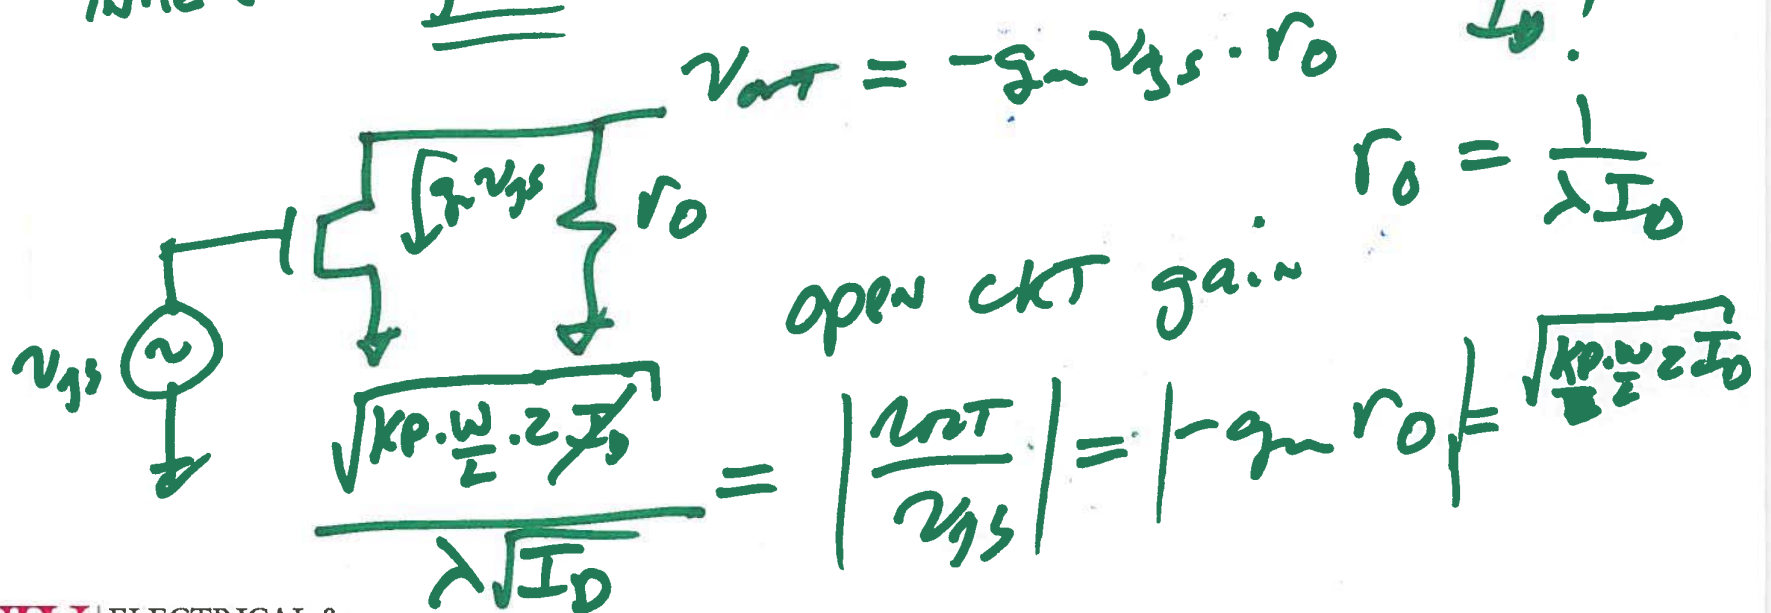 I_D ?
v_out = -g_m v_gs · r_o
g_m v_gs
r_o
r_o = 1 / λ I_D
v_gs
open ckt gain
√(KP · W/L · 2 I_D) / λ √I_D = | v_out / v_gs | = | -g_m r_o | = √(KP · W/L 2 I_D)
ELECTRICAL &